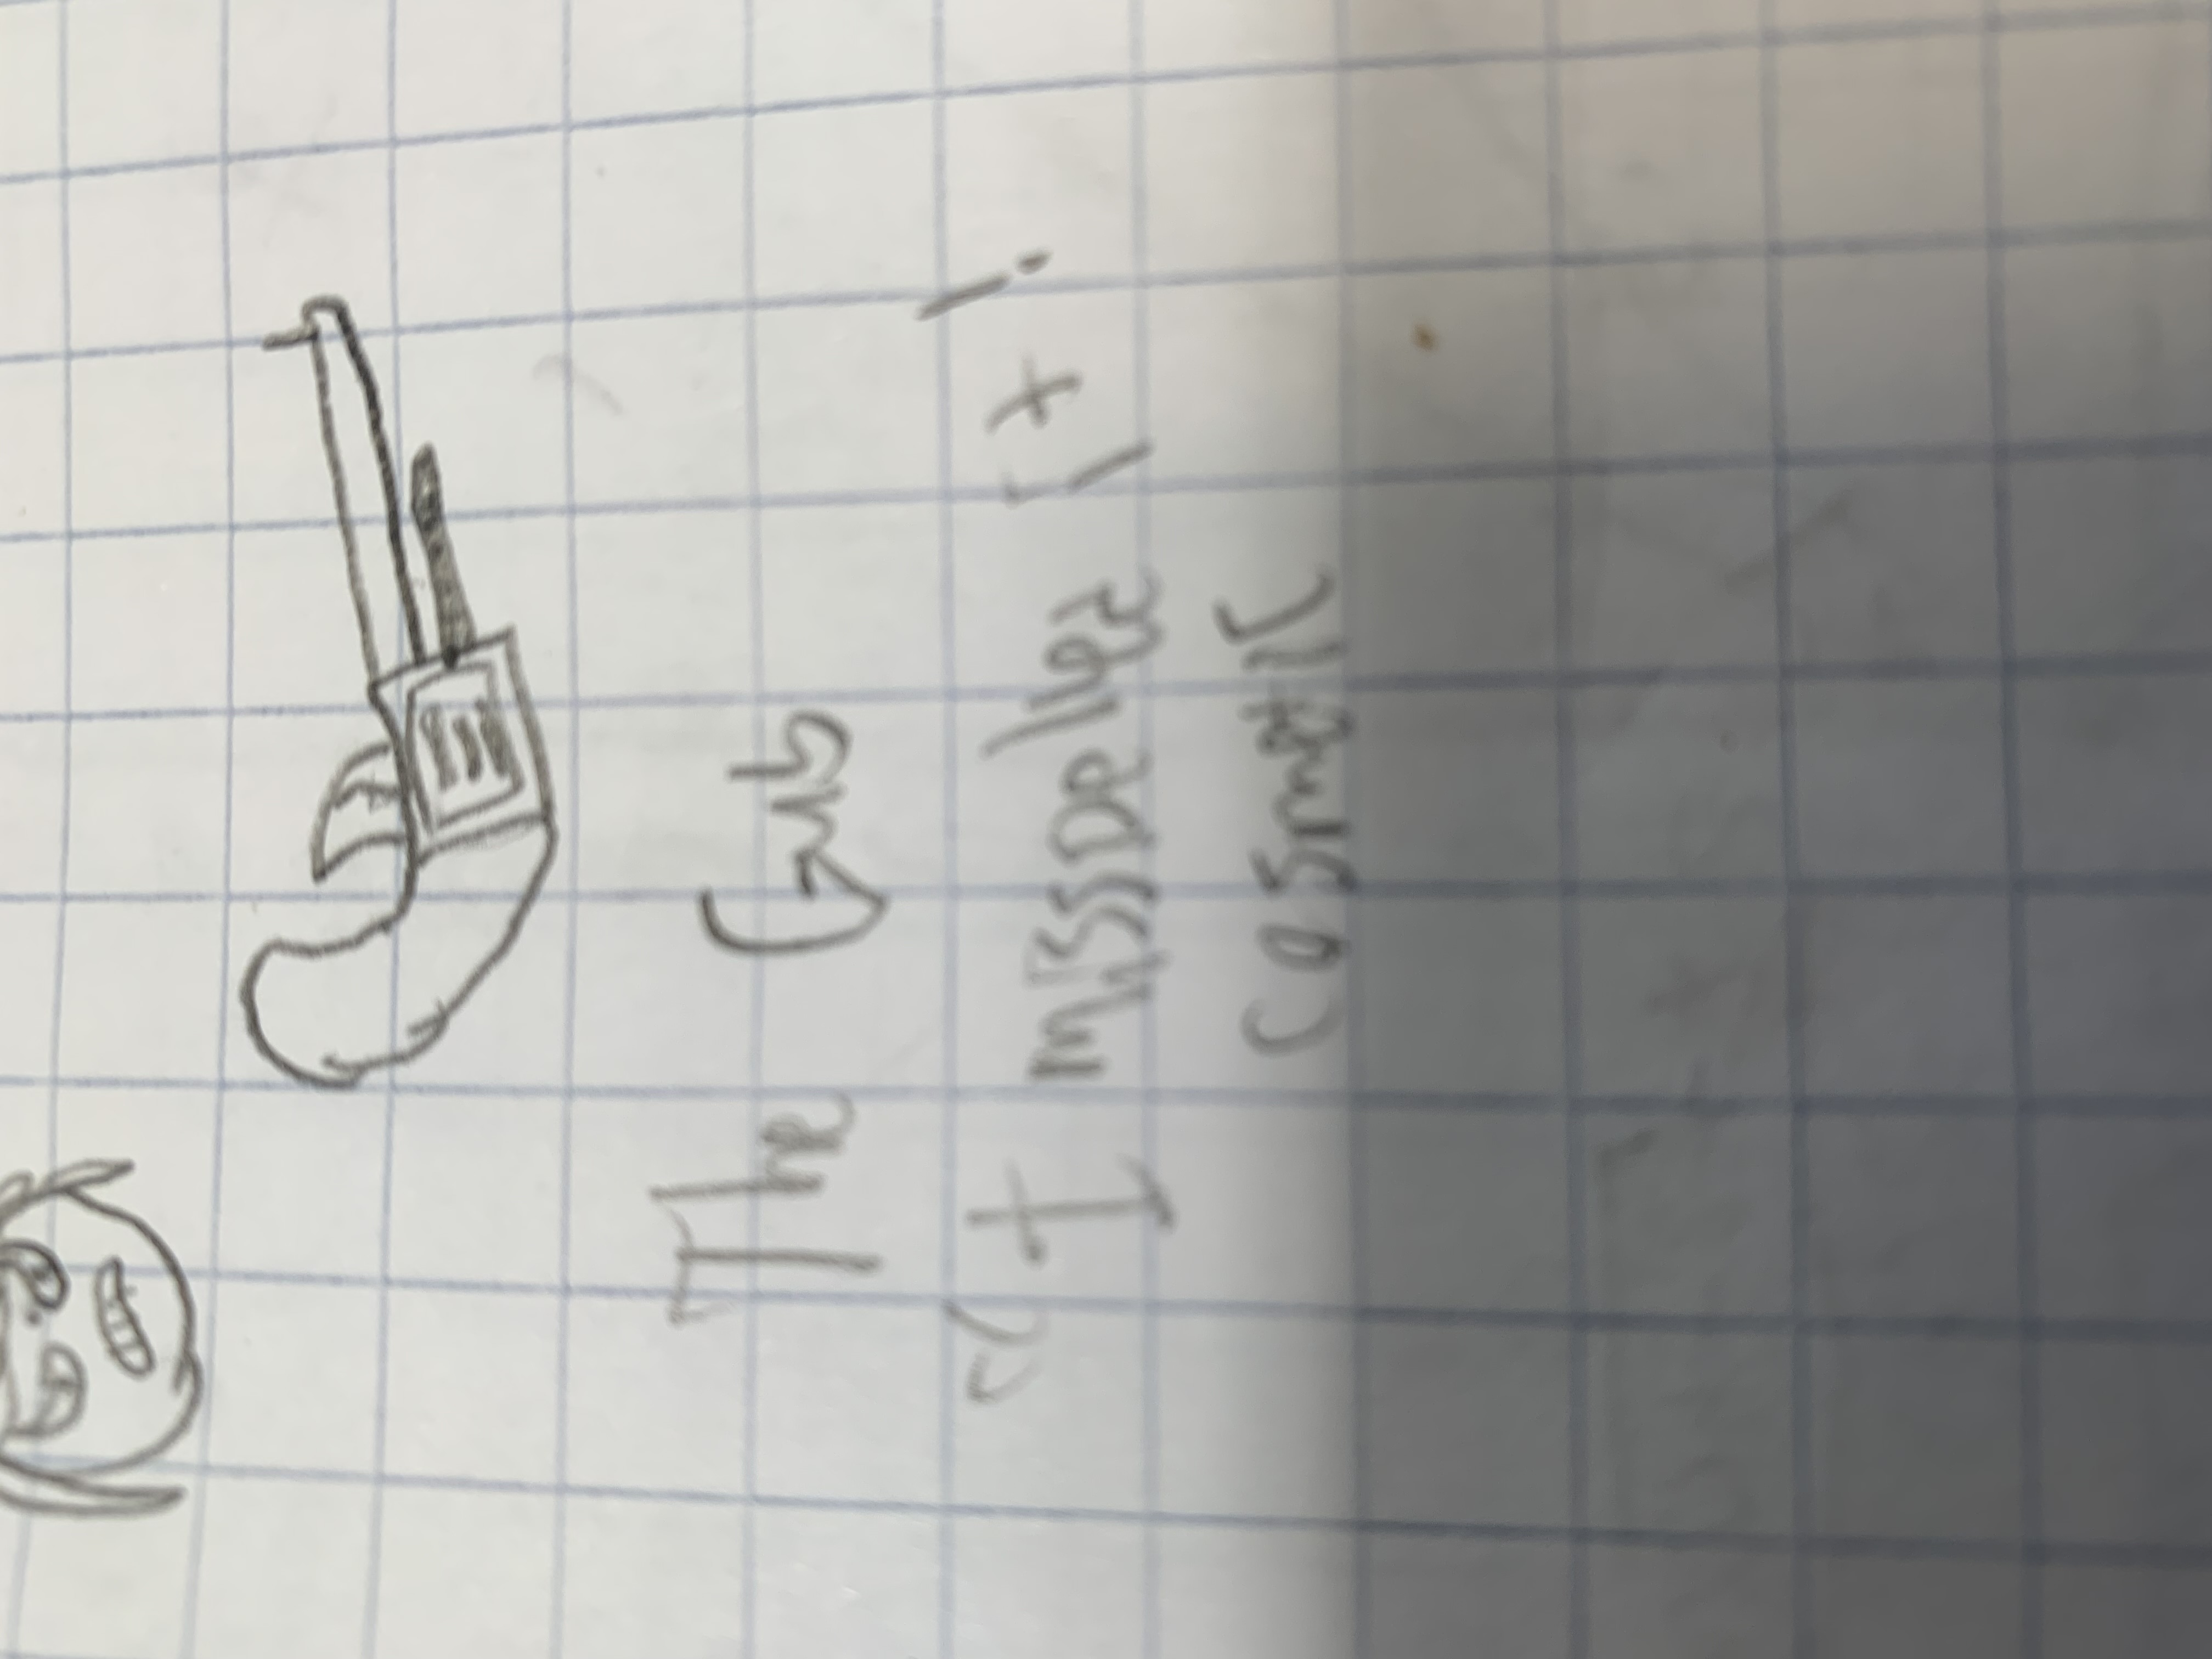 The Gub
"I misspelled it!
cosmetic